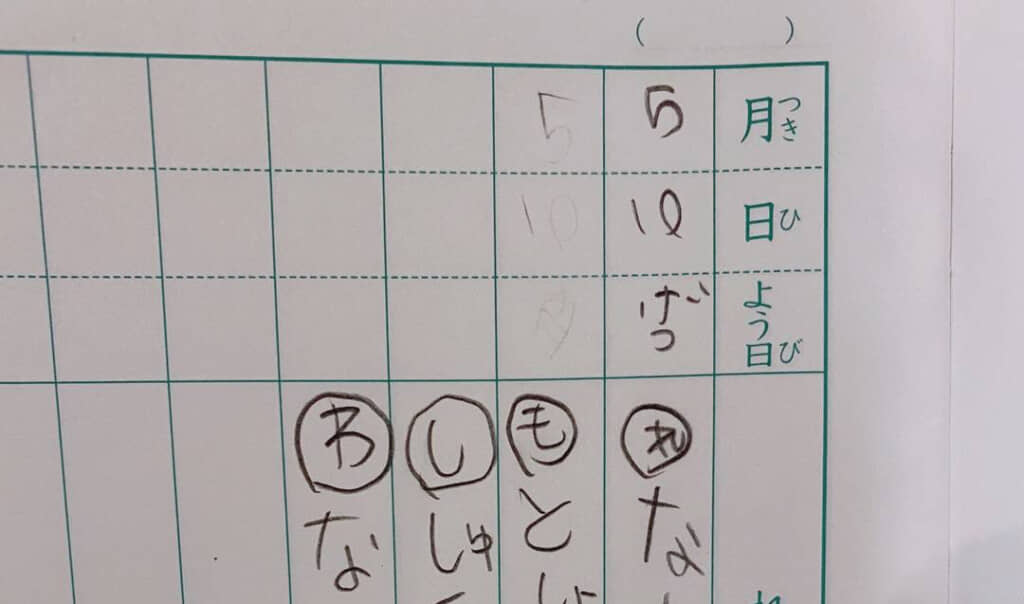 ( )
月 つき
日 ひ
よう日 び
5
10
げつ
れ な
5
10
も としょ
し しゅ
わ な